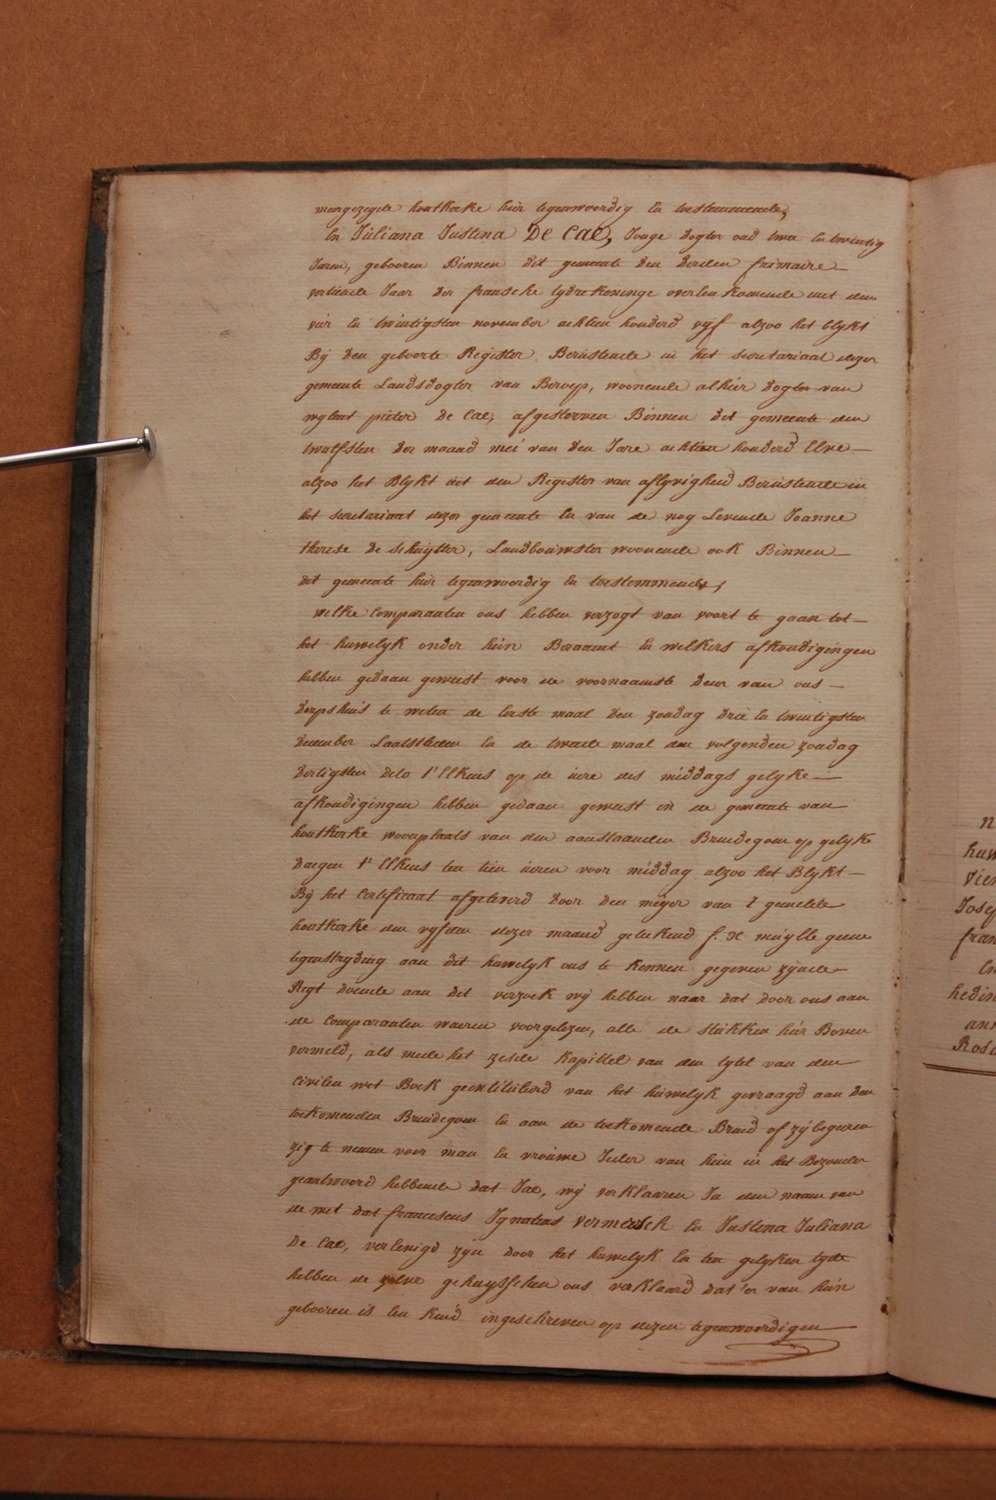 mengezegde houtkerke hier tegenwoordig en toestemmende,
En Juliana Justina De Cae, Jonge Dogter oud twee en twintig
Jaren, gebooren Binnen dit gemeente den derden frimaire
vertiende Jaar der fransche tydrekeninge overEenkomende met den
vier en twintigsten november achtien honderd vyf alzoo het blykt
Bij den geboorte Register Berustende in het secretariaat dezer
gemeente Landsdogter van Beroep, woonende alhier dogter van
wylent pieter De Cae, afgestorven Binnen dit gemeente den
twalfsten der maand mei van den Jare achtien honderd Elve
alzoo het Blykt uit den Register van aflyvigheid Berustende in
het secretariaat dezer gemeente en van de nog Levende Joanne
therese De schuytter, Landbouwster woonende ook Binnen
dit gemeente hier tegenwoordig en toestemmende,
welke Comparanten ons hebben verzogt van voort te gaan tot
het huwelyk onder hun Beraamt en welkers afkondigingen
hebben gedaan geweest voor de voornaamste deur van ons
dorpshuis te weten de Eerste maal den zondag drie en twintigsten
december Laatstleden en de tweede maal den volgenden zondag
dertigsten dito t'Elkens op de ure des middags gelyke
afkondigingen hebben gedaan geweest in de gemeente van
houtkerke woonplaats van den aanstaanden Bruidegom op gelyke
daegen t'Elkens ten tien uren voor middag alzoo het Blykt
Bij het Certificaat afgeleverd door den meyer van t gemelde
houtkerke den vyfden dezer maand geteekend f. De muylle geene
tegenstryding aan dit huwelyk ons te Kennen gegeven zynde
Regt doende aan dit verzoek wy hebben naar dat door ons aan
de Comparanten waeren voorgelezen, alle de stukken hier Boven
vermeld, als mede het zesde Kapittel van den tytel van den
Civilen wet Boek geentituleerd van het huwelyk gevraagd aan den
toekomenden Bruidegom en aan de toekomende Bruid of zy begeeren
zig te nemen voor man en vrouwe Ieder van hun in het Bezonder
geantwoord hebbende dat Jae, wy verklaaren In den naam van
de wet dat franciscus Ignatius vermeesch en Justina Juliana
De Cae, verEenigd zyn door het huwelyk En ten gelyken tyde
hebben de zelve gehuysschen ons verklaard dat er van hun
gebooren is Een Kind ingeschreven op dezen tegenwoordigen
N
huw
vier
Josep
fran
En
hedin
ann
Rosa